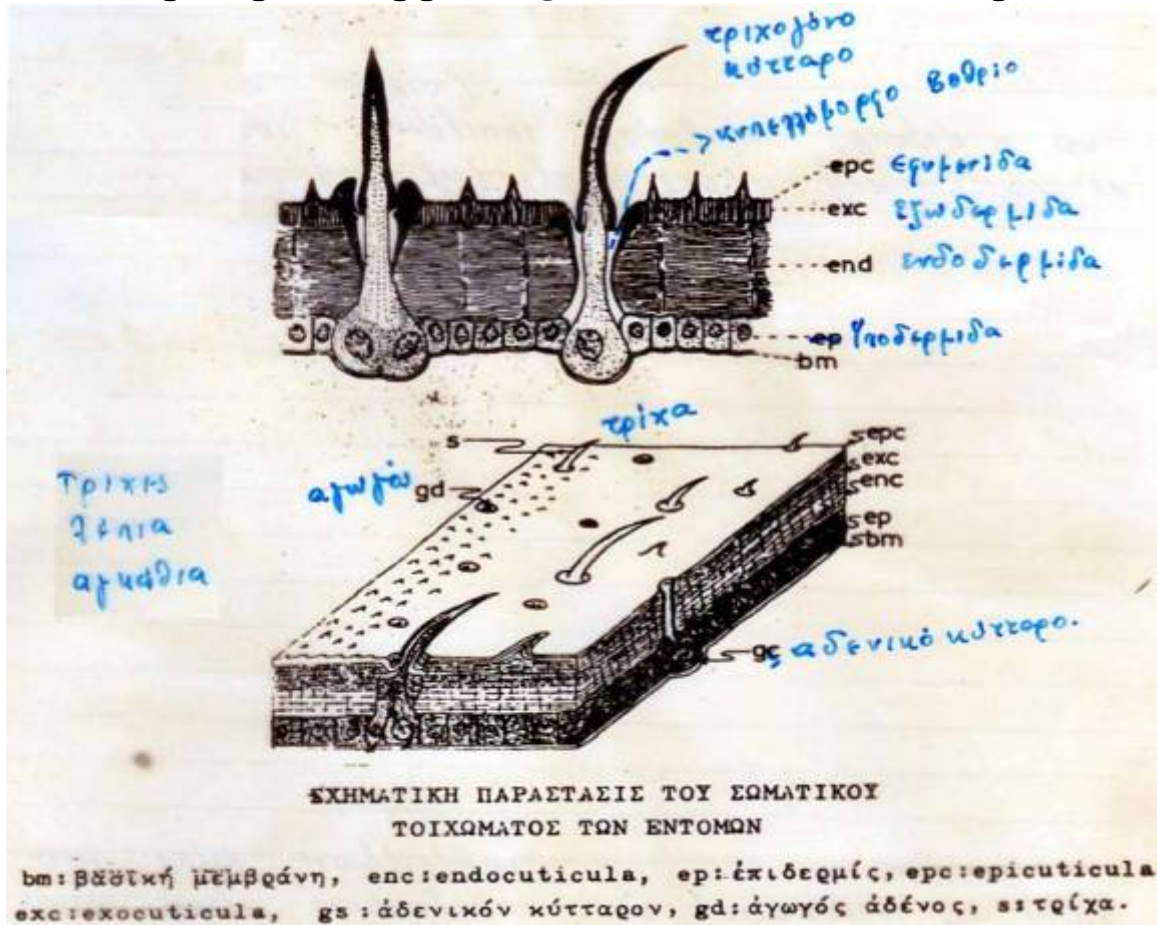 τριχογόνο
κύτταρο
κυπελλόμορφο βοθρίο
epc εφυμενίδα
exc εξωδερμίδα
end ενδοδερμίδα
ep Υποδερμίδα
bm
τρίχα
s
epc
exc
enc
αγωγός gd
ep
bm
Τρίχες
λέπια
αγκάθια
gc αδενικό κύτταρο.
ΣΧΗΜΑΤΙΚΗ ΠΑΡΑΣΤΑΣΙΣ ΤΟΥ ΣΩΜΑΤΙΚΟΥ
ΤΟΙΧΩΜΑΤΟΣ ΤΩΝ ΕΝΤΟΜΩΝ
bm: βασική μεμβράνη, enc:endocuticula, ep: ἐπιδερμίς, epc:epicuticula
exc:exocuticula, gs : ἀδενικόν κύτταρον, gd: ἀγωγός ἀδένος, s: τρίχα.